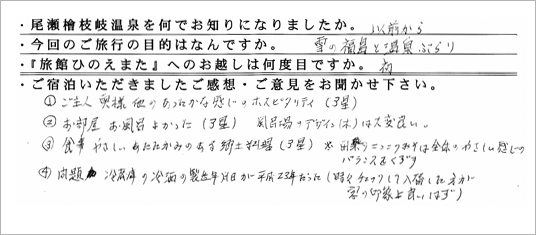 ・尾瀬檜枝岐温泉を何でお知りになりましたか。 以前から
・今回のご旅行の目的はなんですか。 雪の福島と温泉ぶらり
・『旅館ひのえまた』へのお越しは何度目ですか。 初
・ご宿泊いただきましたご感想・ご意見をお聞かせ下さい。
① ご主人 奥様 他のあたたかな感じのホスピタリティ (3星)
② お部屋 お風呂よかった (3星) 風呂場のデザイン(木)は大変良い。
③ 食事 やさしい あたたかみのある郷土料理 (3星) は全体のやさしい感じの
バランスをくずす
④ 問題 冷蔵庫の冷酒の製造年月日が平成23年だった (時々チェックして入荷した方が
宿の印象も良いはず)